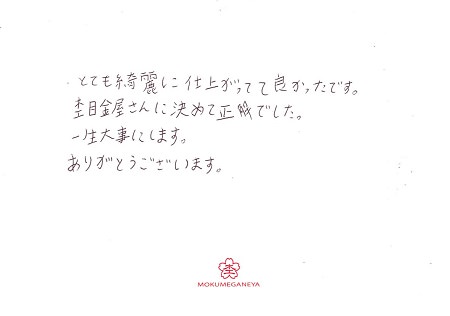 とても綺麗に仕上がってて良かったです。
杢目金屋さんに決めて正解でした。
一生大事にします。
ありがとうございます。
杢
MOKUMEGANEYA